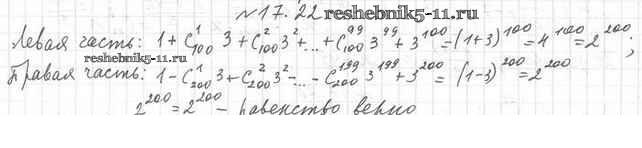 №17.22 reshebnik5-11.ru
Левая часть: 1 + C¹₁₀₀ 3 + C²₁₀₀ 3² + ... + C⁹⁹₁₀₀ 3⁹⁹ + 3¹⁰⁰ = (1+3)¹⁰⁰ = 4¹⁰⁰ = 2²⁰⁰;
reshebnik5-11.ru
Правая часть: 1 - C¹₂₀₀ 3 + C²₂₀₀ 3² - ... - C¹⁹⁹₂₀₀ 3¹⁹⁹ + 3²⁰⁰ = (1-3)²⁰⁰ = 2²⁰⁰
2²⁰⁰ = 2²⁰⁰ - равенство верно